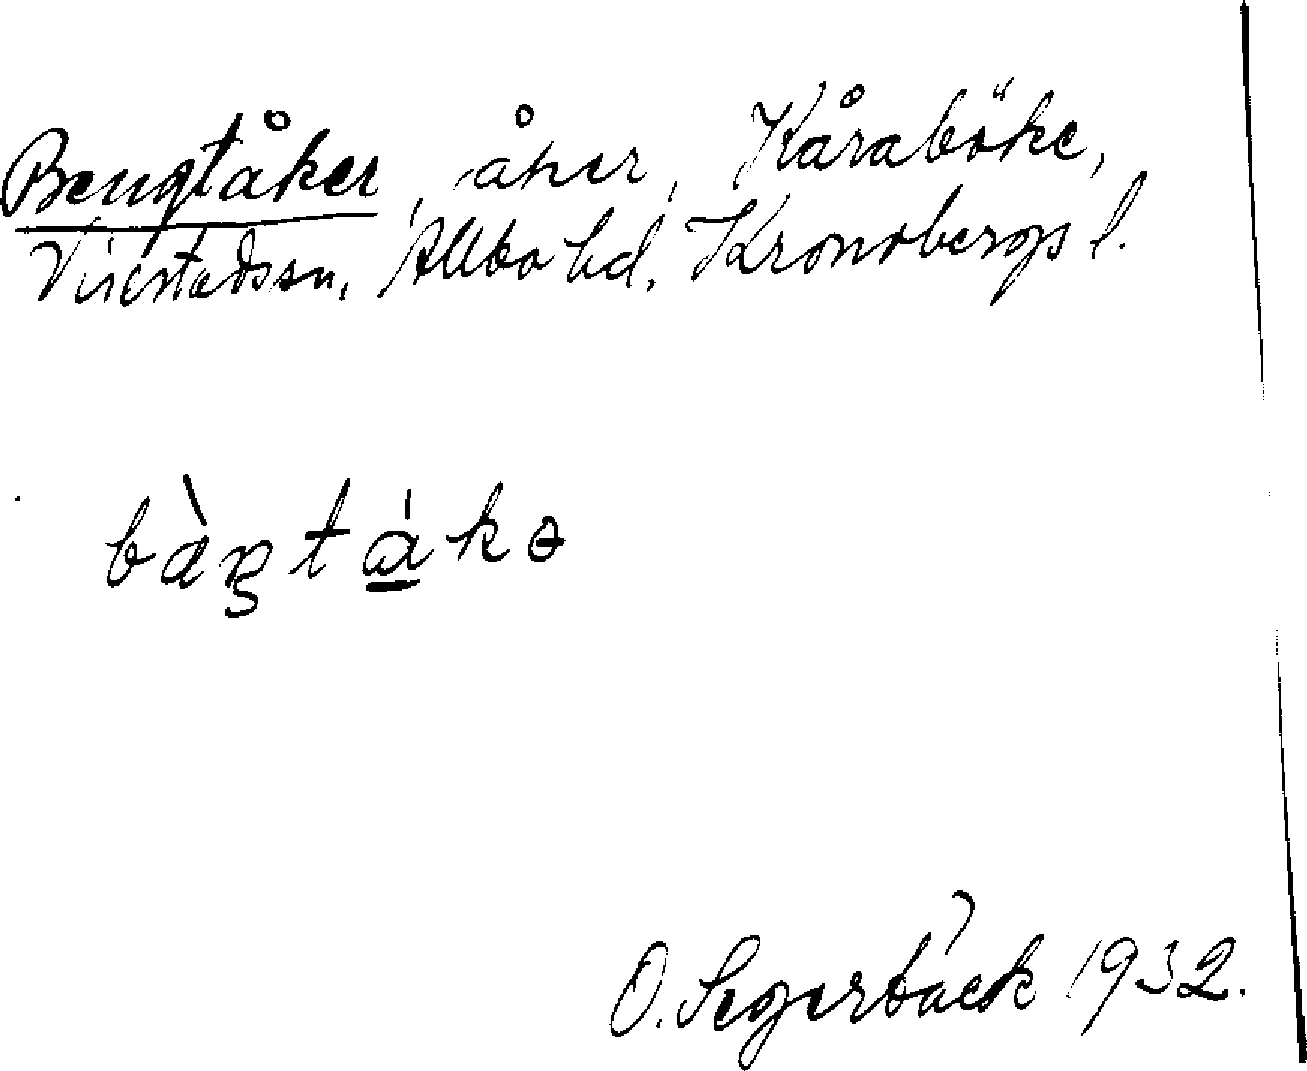 Bengtåker, åker, Kåraböke,
Virestadssn, Allbo hd, Kronobergs l.
bàŋtá̲kə
O. Segerbäck 1932.